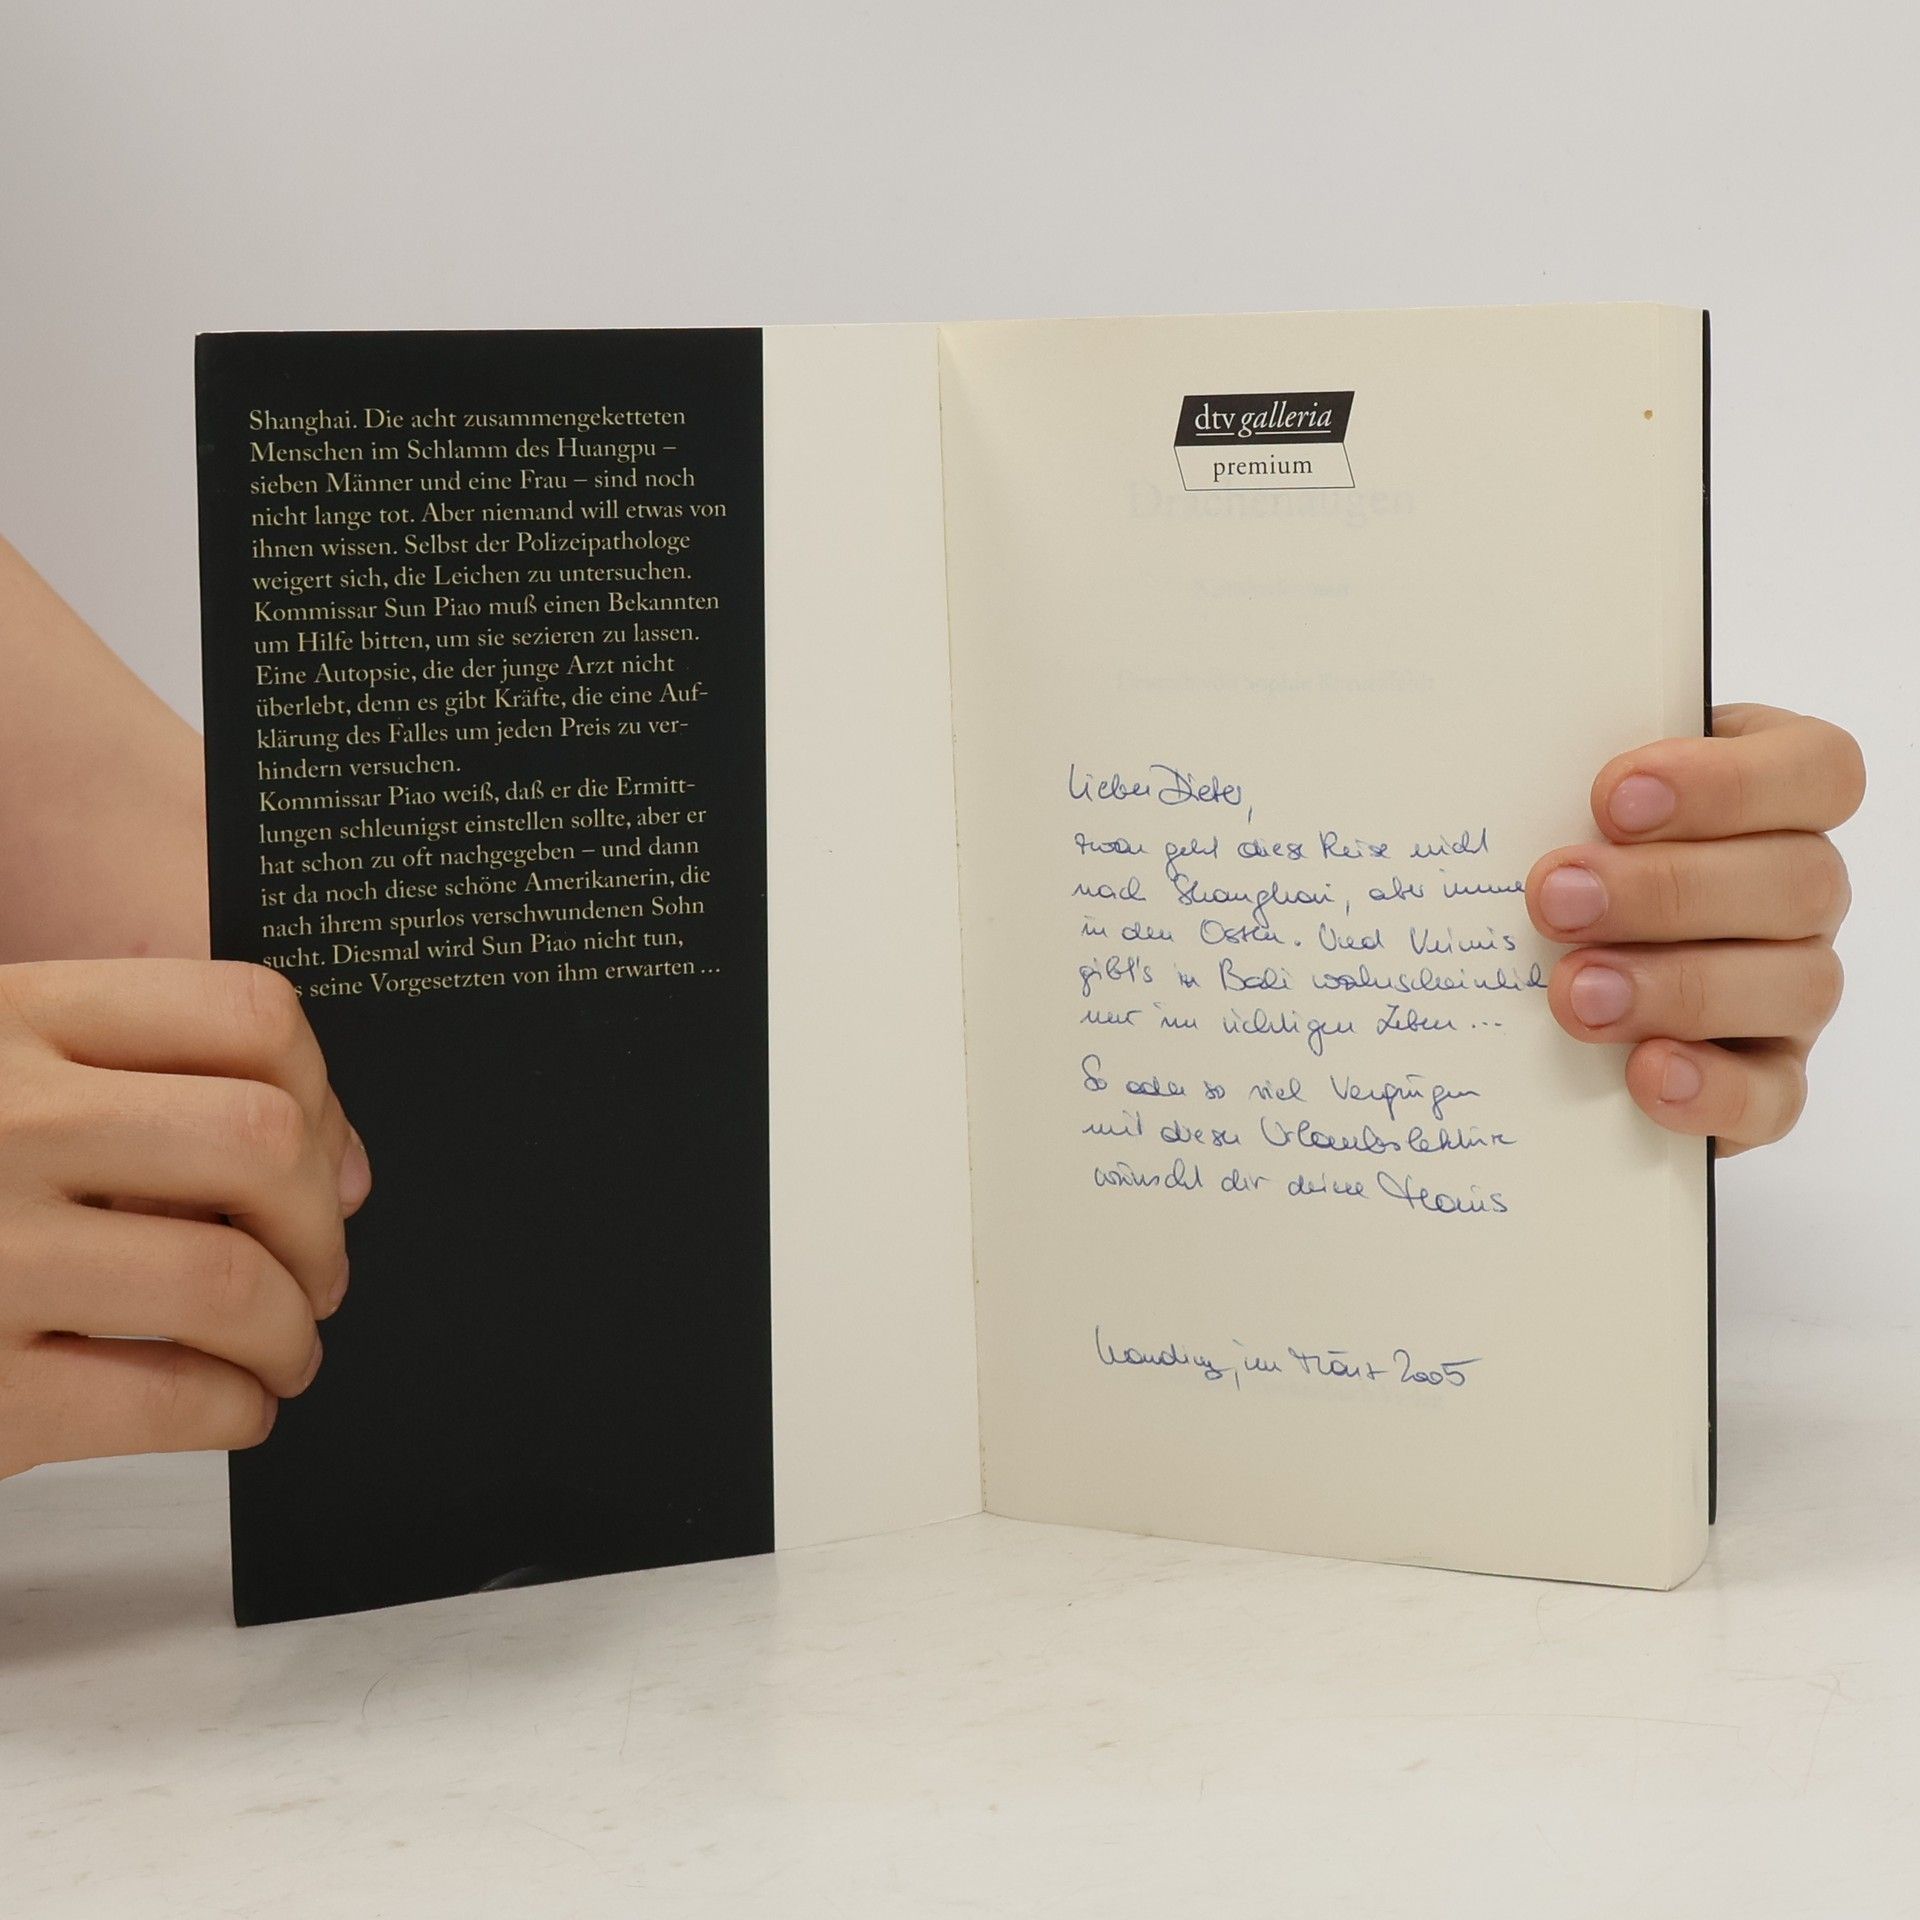 Shanghai. Die acht zusammengeketteten
Menschen im Schlamm des Huangpu –
sieben Männer und eine Frau – sind noch
nicht lange tot. Aber niemand will etwas von
ihnen wissen. Selbst der Polizeipathologe
weigert sich, die Leichen zu untersuchen.
Kommissar Sun Piao muß einen Bekannten
um Hilfe bitten, um sie sezieren zu lassen.
Eine Autopsie, die der junge Arzt nicht
überlebt, denn es gibt Kräfte, die eine Auf-
klärung des Falles um jeden Preis zu ver-
hindern versuchen.
Kommissar Piao weiß, daß er die Ermitt-
lungen schleunigst einstellen sollte, aber er
hat schon zu oft nachgegeben – und dann
ist da noch diese schöne Amerikanerin, die
nach ihrem spurlos verschwundenen Sohn
sucht. Diesmal wird Sun Piao nicht tun,
seine Vorgesetzten von ihm erwarten ...
dtv galleria
premium
Lieber Dieter,
zwar geht diese Reise nicht
nach Shanghai, aber immer
in den Osten. Und Krimis
gibt's in Bali wahrscheinlich
nur im richtigen Leben ...
So oder so viel Vergnügen
mit dieser Urlaubslektüre
wünscht dir deine
im März 2005